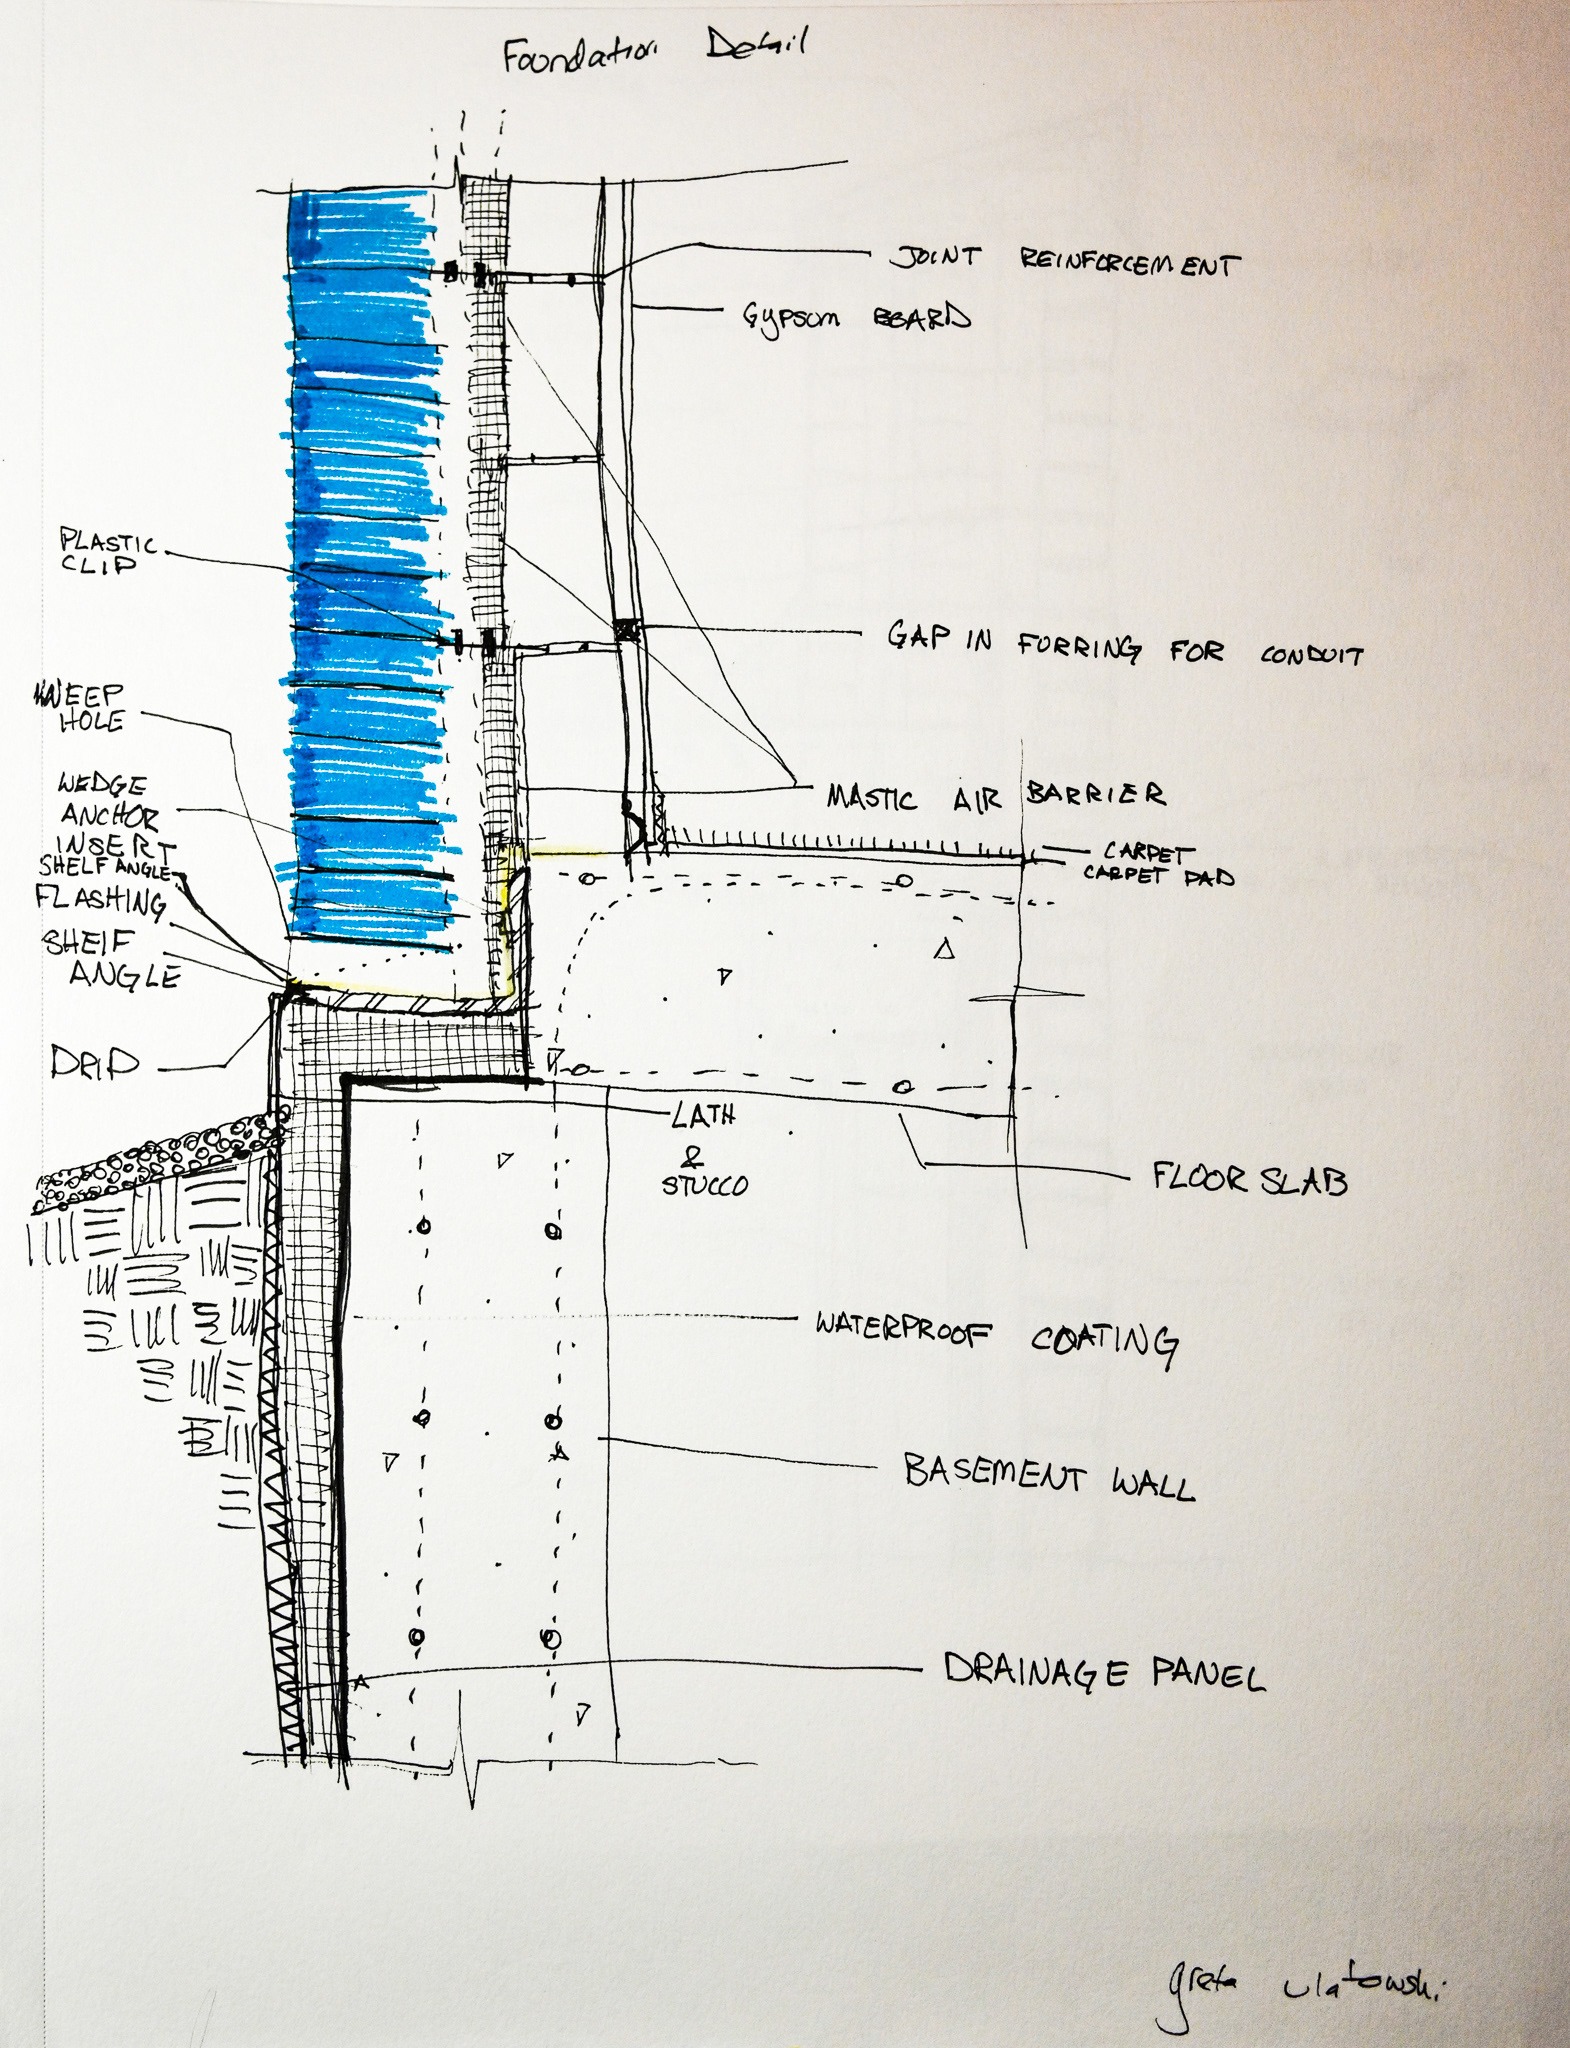 Foundation Detail
JOINT REINFORCEMENT
GYPSUM BOARD
PLASTIC
CLIP
GAP IN FURRING FOR CONDUIT
WEEP
HOLE
WEDGE
ANCHOR
INSERT
SHELF ANGLE
FLASHING
SHELF
ANGLE
MASTIC AIR BARRIER
CARPET
CARPET PAD
DRIP
LATH
&
STUCCO
FLOOR SLAB
WATERPROOF COATING
BASEMENT WALL
DRAINAGE PANEL
greta ulatowski